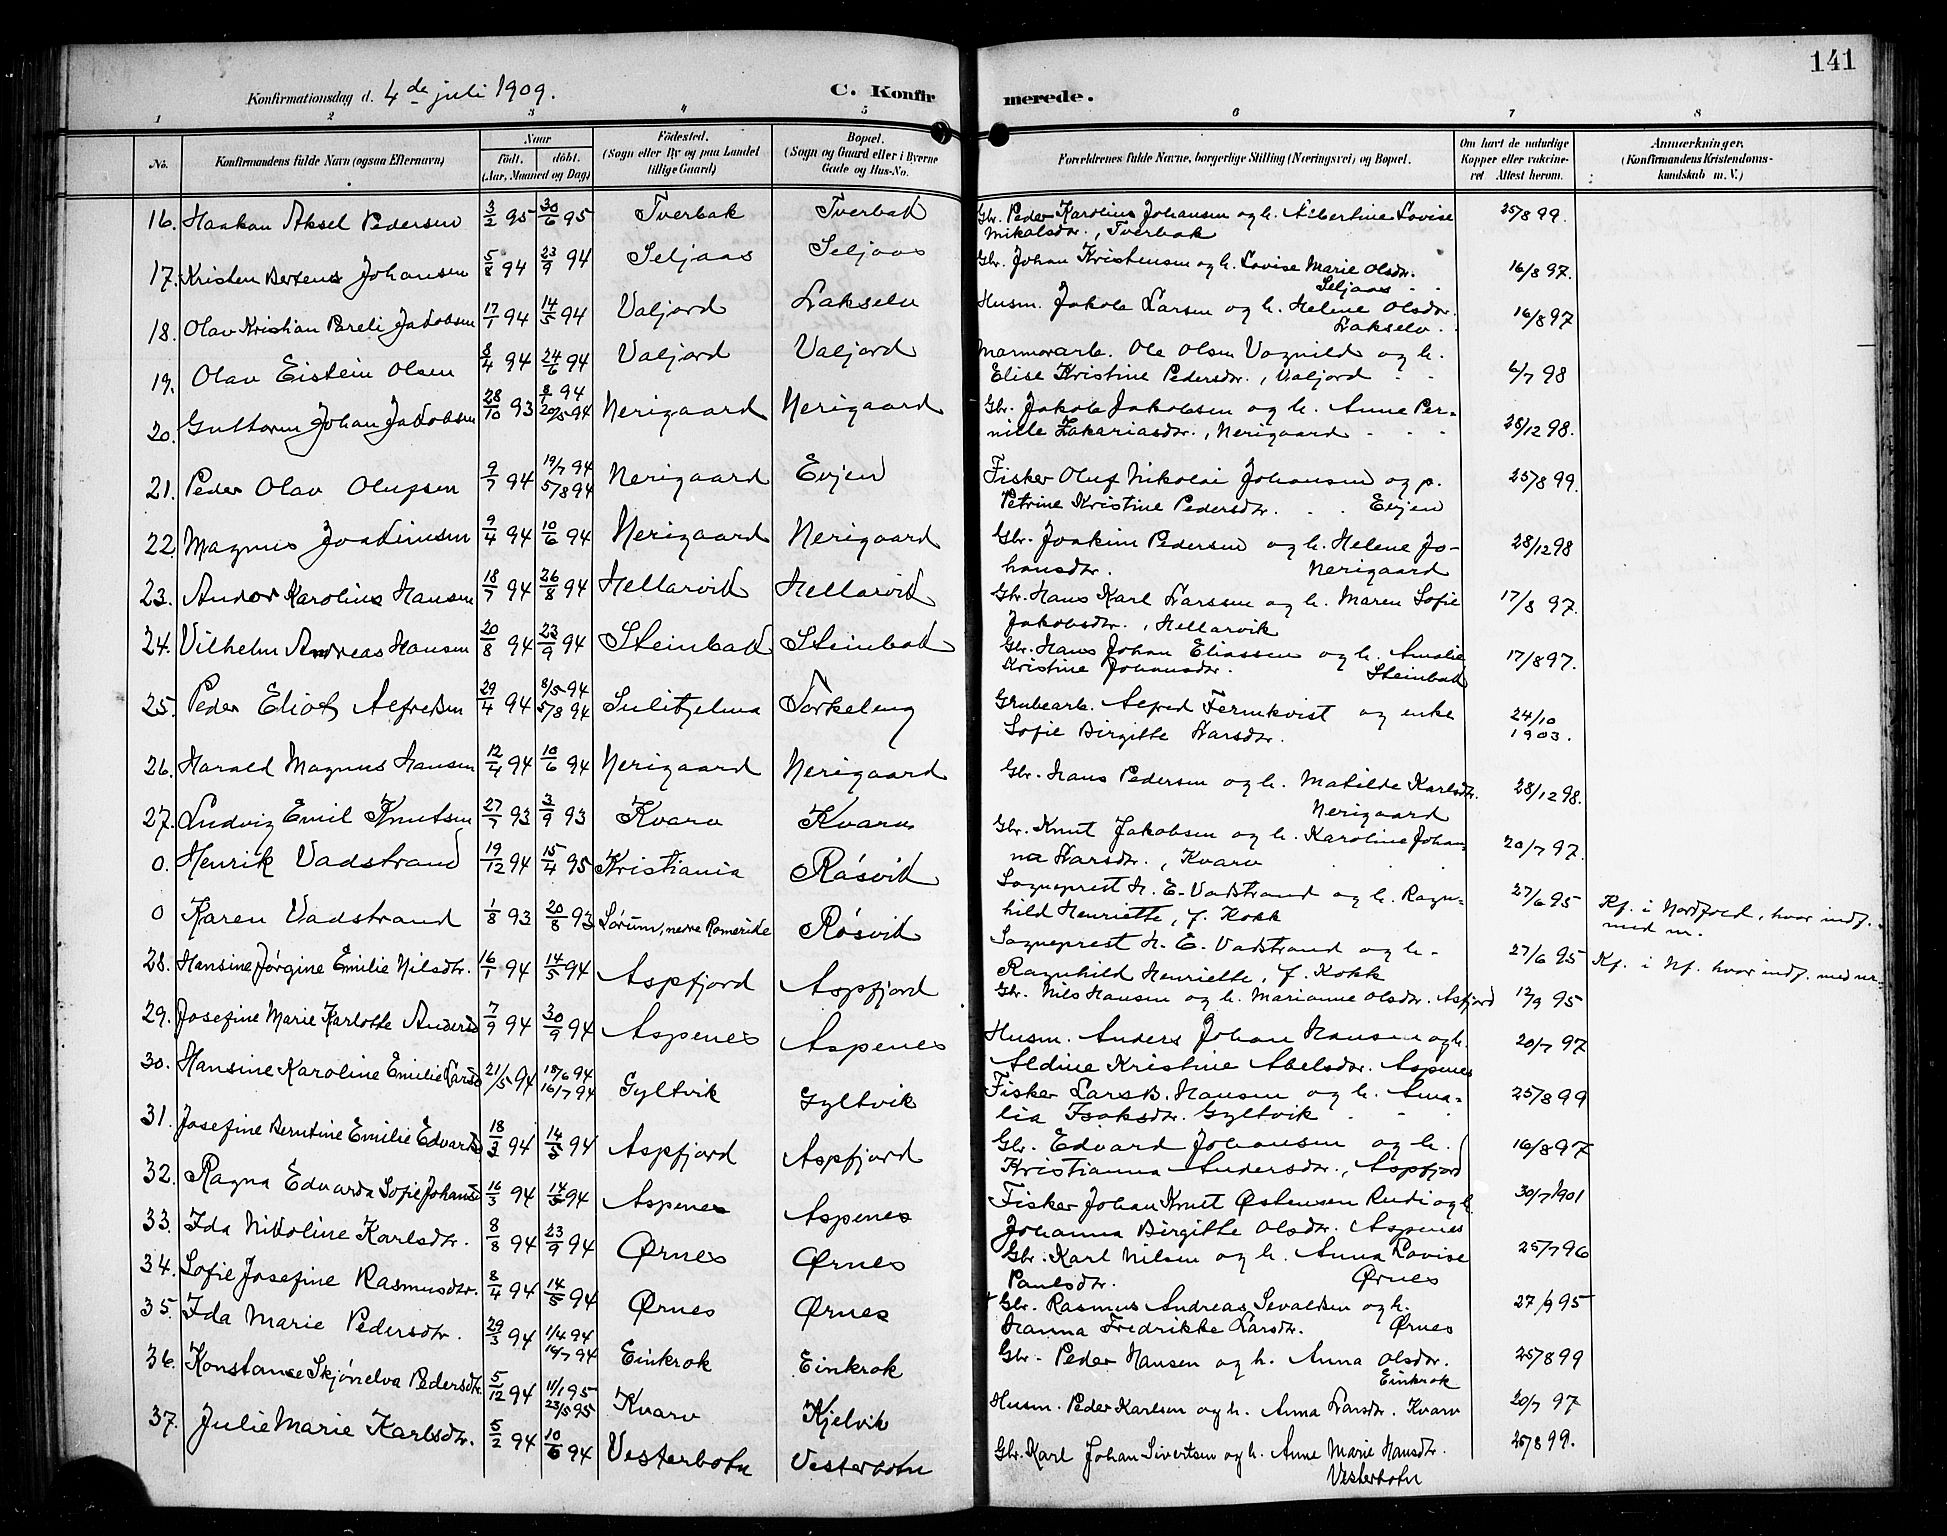 141
Konfirmationsdag d. 4de juli 1909.
C. Konfirmerede.
1 2 3 4 5 6 7 8
No. | Konfirmandens fulde Navn (ogsaa Efternavn) | Naar født. døbt. (Aar, Maaned og Dag) | Fødested. (Sogn eller By og paa Landet tillige Gaard) | Bopæl. (Sogn og Gaard eller i Byerne Gade og Hus-No. | Forældrenes fulde Navne, borgerlige Stilling (Næringsvei) og Bopæl. | Om havt de naturlige Kopper eller vaccineret Attest herom. | Anmærkninger. (Konfirmandens Kristendomskundskab m. V.)
16. Haakon Aksel Pedersen 3/2 95 30/6 95 Tverbak Tverbak Gbr. Peder Karolius Johansen og h. Albertine Lovise 25/8 99.
Mikalsdtr., Tverbak
17. Kristen Bertens Johansen 5/8 94 23/9 94 Seljaas Seljaas Gbr. Johan Kristensen og h. Lovise Marie Olsdtr. 16/8 97.
Seljaas
18. Olav Kristian Pareli Jakobsen 17/1 94 14/5 94 Valjord Lakselv Husm. Jakob Larsen og h. Helene Olsdtr. 16/8 97
Lakselv
19. Olav Eistein Olsen 8/4 94 24/6 94 Valjord Valjord Marmorarb. Ole Olsen Vognild og h.
Elise Kristine Pedersdtr., Valjord 6/7 98
20. Guttorm Johan Jakobsen 28/10 93 8/1 94 20/5 94 Nerigaard Nerigaard Gbr. Jakob Jakobsen og h. Anne Per-
nille Zakariasdtr., Nerigaard 28/12 98.
21. Peder Olav Olufsen 9/7 94 19/7 94 5/8 94 Nerigaard Evjen Fisker Oluf Nikolai Johansen og p. 25/8 99.
Petrine Kristine Pedersdtr. Evjen
22. Magnus Joakimsen 9/4 94 10/6 94 Nerigaard Nerigaard Gbr. Joakim Pedersen og h. Helene Jo- 28/12 98
hansdtr. Nerigaard
23. Andor Karolius Hansen 18/7 94 26/8 94 Hellarvik Hellarvik Gbr. Hans Karl Larssen og h. Maren Sofie 17/8 97.
Jakobsdtr., Hellarvik
24. Vilhelm Andreas Hansen 20/8 94 23/9 94 Steinbakk Steinbakk Gbr. Hans Johan Eliassen og h. Amalie 17/8 97.
Kristine Johansdtr. Steinbakk
25. Peder Eliot Alfredsen 29/4 94 8/5 94 5/8 94 Sulitjelma Torkeleng Grubearb. Alfred Fernkvist og enke 24/10
Sofie Birgitte Larsdtr. 1903.
26. Harald Magnus Hansen 12/4 94 10/6 94 Nerigaard Nerigaard Gbr. Hans Pedersen og h. Matilde Karlsdtr. 28/12 98.
Nerigaard
27. Ludvig Emil Knutsen 27/7 93 3/9 93 Kvarv Kvarv Gbr. Knut Jakobsen og h. Karoline Johan- 20/7 97.
na Larsdtr., Kvarv
0. Henrik Vadstrand 19/12 94 15/4 95 Kristiania Røsvik Sogneprest H. E. Vadstrand og h. Ragn- 27/6 95 Kf. i Nordfold, hvor indf.
hild Henriette, f. Kokk med nr.
0 Karen Vadstrand 1/8 93 20/8 93 Sørum, nedre Romerike Røsvik Sogneprest H. E. Vadstrand og h. 27/6 95 Kf. i Nf. hvor indf. med nr.
Ragnhild Henriette, f. Kokk
28. Hansine Jørgine Emilie Nilsdtr. 16/1 94 14/5 94 Aspfjord Aspfjord Gbr. Nils Hansen og h. Marianne Olsdtr. Asfjord 12/9 95
29. Josefine Marie Karlotte Andersd 7/9 94 30/9 94 Aspenes Aspenes Husm. Anders Johan Hansen og h. 20/7 97
Aldine Kristine Abelsdtr. Aspenes
30. Hansine Karoline Emilie Larsd 21/5 94 18/6 94 16/7 94 Gyltvik Gyltvik Fisker Lars B. Hansen og h. Ama- 25/8 99
lia Isaksdtr. Gyltvik
31. Josefine Berntine Emilie Edvardsd 18/3 94 14/5 94 Aspfjord Aspfjord Gbr. Edvard Johansen og h. 16/8 97
Kristianna Andersdtr., Aspfjord
32. Ragna Edvarda Sofie Johansd 16/3 94 14/5 94 Aspenes Aspenes Fisker Johan Knut Østensen Rudi og h. 30/7 1901
Johanna Birgitte Olsdtr. Aspenes
33. Ida Nikoline Karlsdtr. 8/8 94 23/9 94 Ørnes Ørnes Gbr. Karl Nilsen og h. Anna Lovise 25/7 96
Paulsdtr. Ørnes
34. Sofie Josefine Rasmusdtr. 8/4 94 14/5 94 Ørnes Ørnes Gbr. Rasmus Andreas Sevaldsen og h. 27/9 95
Hanna Fredrikke Larsdtr. Ørnes
35. Ida Marie Pedersdtr. 29/3 94 1/4 94 16/7 94 Einkrok Einkrok Gbr. Peder Hansen og h. Anna Olsdtr. 25/8 99
Einkrok
36. Konstance Skjønelva Pedersdtr. 5/12 94 11/1 95 23/5 95 Kvarv Kjelvik Husm. Peder Karlsen og h. Anna Larsdtr. Kvarv 20/7 97
37. Julie Marie Karlsdtr. 5/2 94 10/6 94 Vesterbotn Vesterbotn Gbr. Karl Johan Sivertsen og h. Anne Marie Hansdtr. 25/8 99.
Vesterbotn